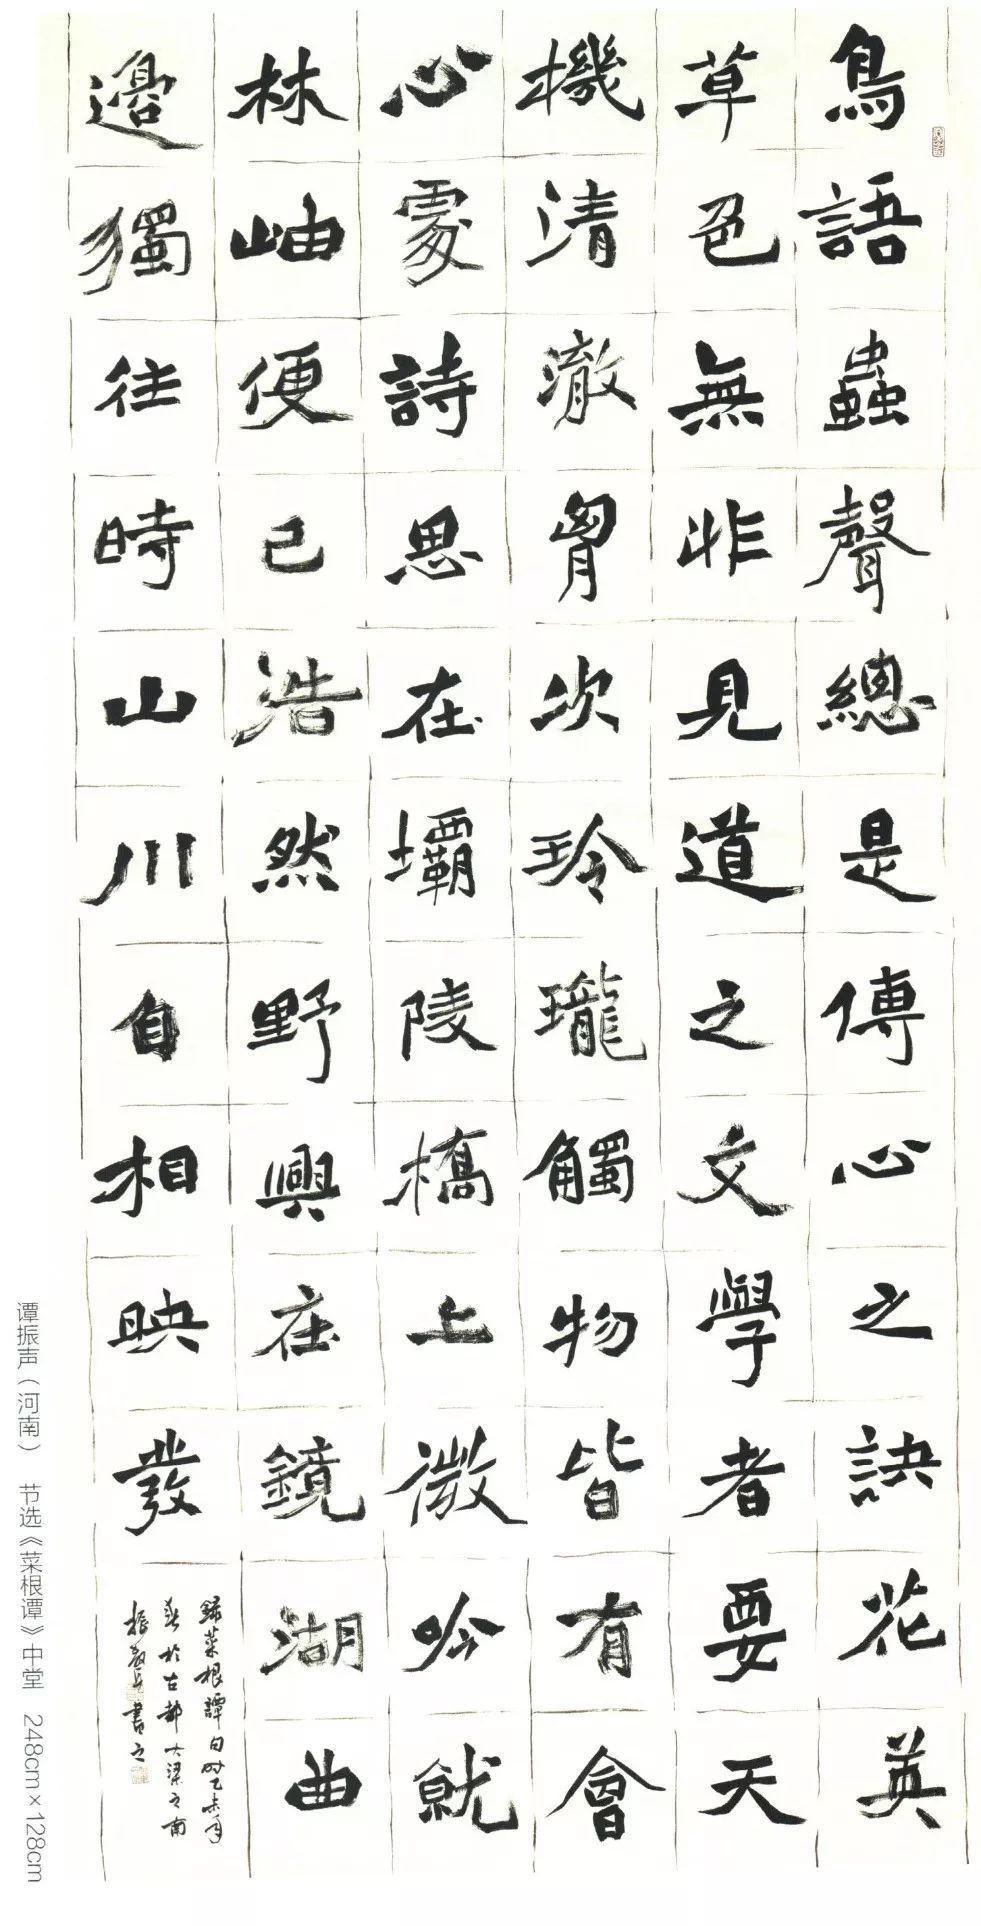 鳥語蟲聲總是傳心之訣花英
草色無非見道之文學者要天
機清澈胷次玲瓏觸物皆有會
心處詩思在壩陵橋上微吟就
林岫便已浩然野興在鏡湖曲
邊獨往時山川自相映發
錄菜根譚句时乙未年
於古都大梁之南
振書之
谭振声（河南） 节选《菜根谭》中堂 248cm×128cm